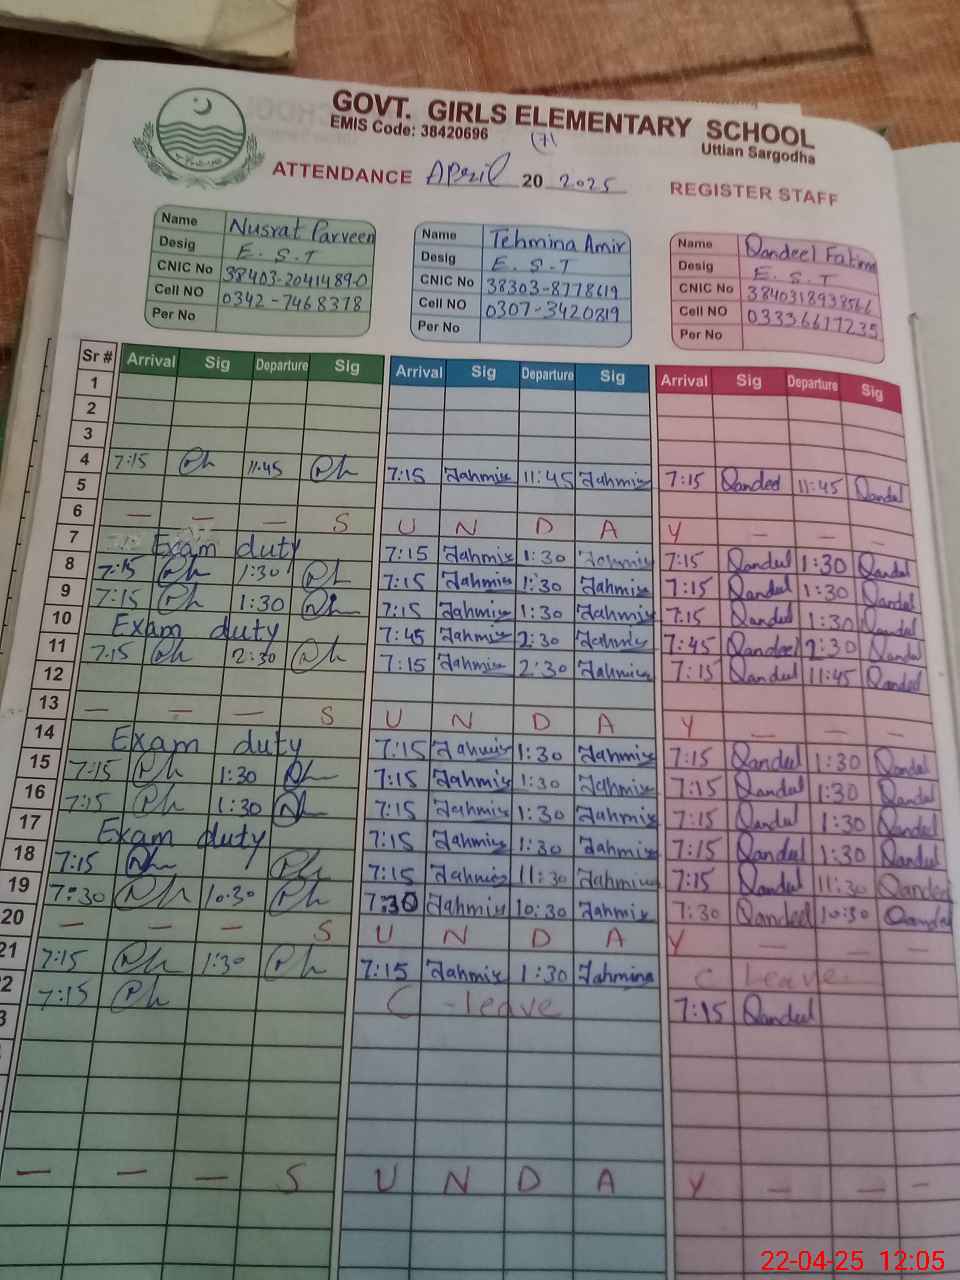 GOVT. GIRLS ELEMENTARY SCHOOL
EMIS Code: 38420696 (7) Uttian Sargodha
ATTENDANCE April 20 2025 REGISTER STAFF
Name Nusrat Parveen
Desig E.S.T
CNIC No 38403-2041489-0
Cell NO 0342-7468378
Per No
Name Tehmina Amir
Desig E.S.T
CNIC No 38303-8778619
Cell NO 0307-3420819
Per No
Name Qandeel Fatima
Desig E.S.T
CNIC No 3840318938566
Cell NO 03336617235
Per No
Sr # Arrival Sig Departure Sig Arrival Sig Departure Sig Arrival Sig Departure Sig
1
2
3
4 7:15 11:45 7:15 Tahmix 11:45 Tahmix 7:15 Qandeel 11:45 Qandel
5
6 — — — S U N D A Y — — —
7 Exam duty 7:15 Tahmix 1:30 Tahmix 7:15 Qandeel 1:30 Qandel
8 7:15 1:30 7:15 Tahmix 1:30 Tahmix 7:15 Qandeel 1:30 Qandel
9 7:15 1:30 7:15 Tahmix 1:30 Tahmix 7:15 Qandeel 1:30 Qandel
10 Exam duty 7:45 Tahmix 2:30 Tahmix 7:45 Qandeel 2:30 Qandel
11 7:15 2:30 7:15 Tahmix 2:30 Tahmix 7:15 Qandeel 11:45 Qandeel
12
13 — — — S U N D A Y — — —
14 Exam duty 7:15 Tahmix 1:30 Tahmix 7:15 Qandeel 1:30 Qandel
15 7:15 1:30 7:15 Tahmix 1:30 Tahmix 7:15 Qandeel 1:30 Qandel
16 7:15 1:30 7:15 Tahmix 1:30 Tahmix 7:15 Qandeel 1:30 Qandel
17 Exam duty 7:15 Tahmix 1:30 Tahmix 7:15 Qandeel 1:30 Qandel
18 7:15 7:15 Tahmix 11:30 Tahmix 7:15 Qandeel 11:30 Qandeel
19 7:30 10:30 7:30 Tahmix 10:30 Tahmix 7:30 Qandeel 10:30 Qandel
20 — — — S U N D A Y — — —
21 7:15 1:30 7:15 Tahmix 1:30 Tahmina C Leave
22 7:15 C - leave 7:15 Qandeel
— — — S U N D A Y — — —
22-04-25 12:05